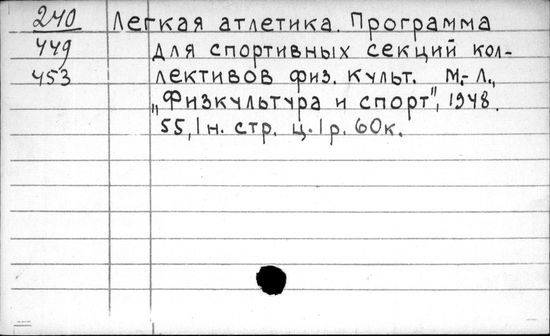 240 Легкая атлетика. Программа
449 для спортивных секций кол-
453 лективов физ. культ. М.-Л.,
„Физкультура и спорт", 1948.
55, 1 н. стр. ц. 1 р. 60 к.